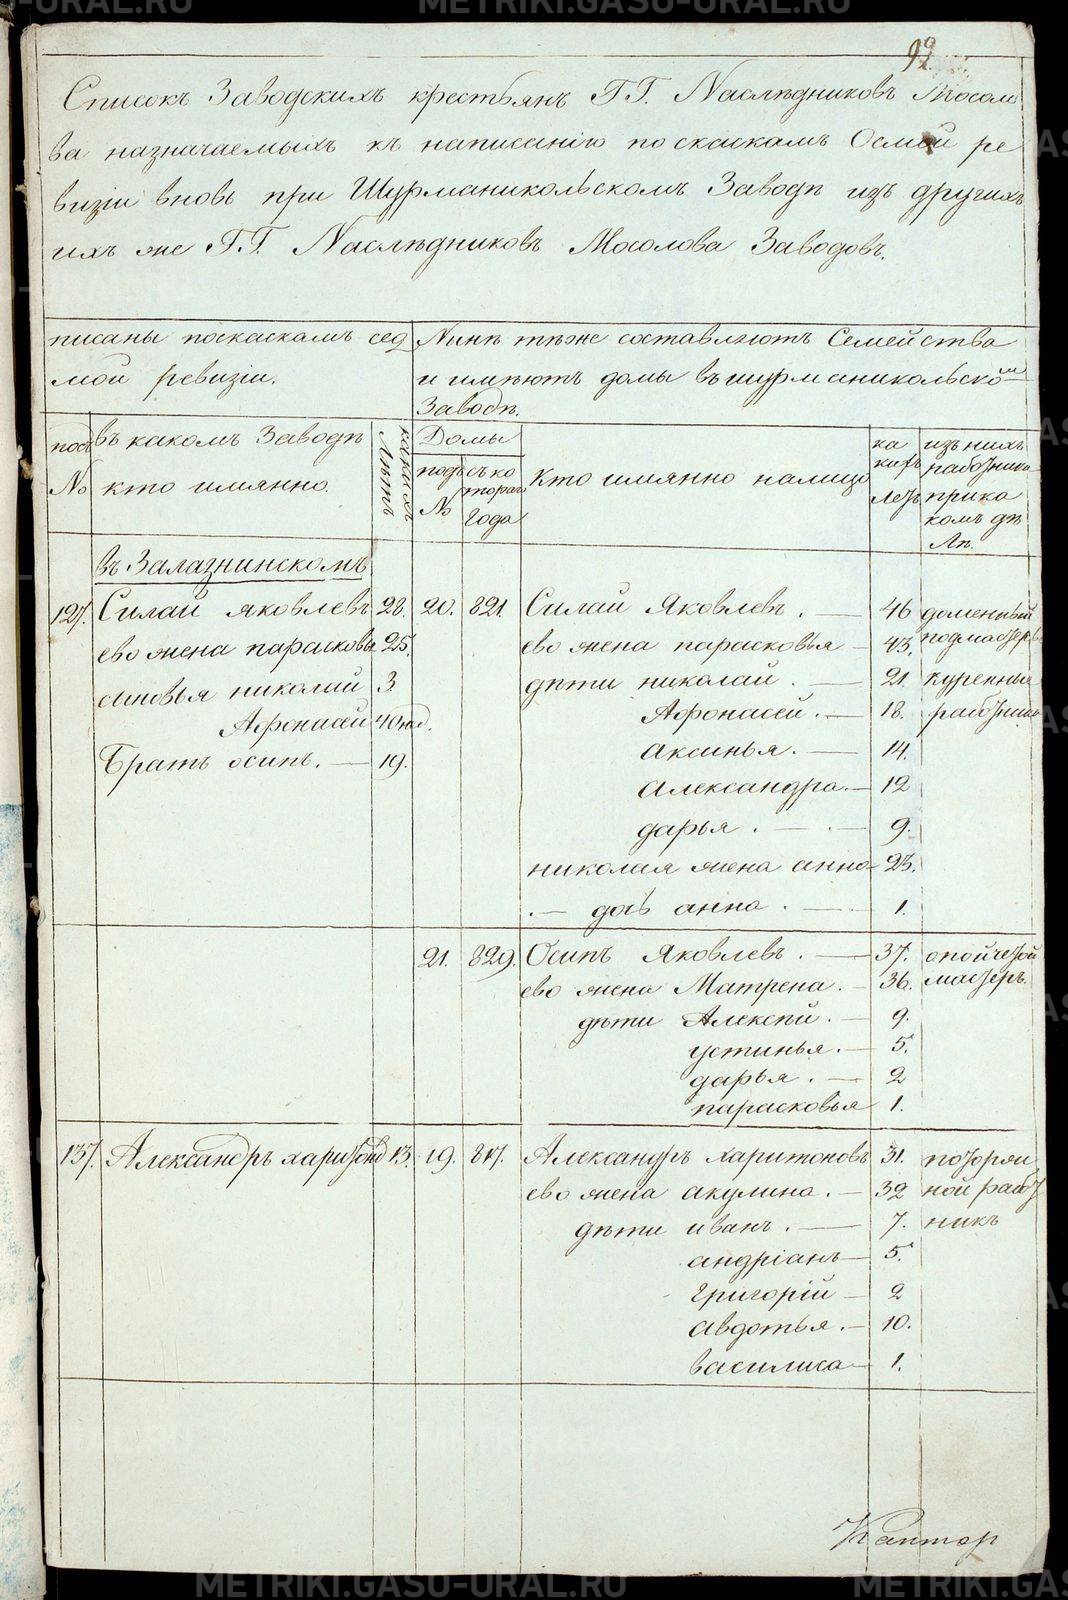 METRIKI.GASU-URAL.RU
99
Списокъ Заводскихъ крестьянъ ГГ. Наслѣдниковъ Мосоло
ва назначаемыхъ къ написанію по скаскамъ Осмой ре
визіи вновь при Шурманикольскомъ Заводѣ изъ другихъ
ихъ же ГГ. Наслѣдниковъ Мосолова Заводовъ.
писаны поскаскамъ сед
мой ревизіи.
Нынѣ тѣже составляютъ Семейства
и имѣютъ домы въ шурманикольском
Заводѣ.
подъ №
въ какомъ Заводѣ
кто имянно.
какихъ лѣтъ
Домы
подъ №
съ ко
тораго
года
Кто имянно налицо
ка
кихъ
летъ
изъ нихъ
работника
прика
комъ дѣ
лѣ.
въ Залазнинскомъ
127. Силай яковлевъ 28. 20. 821. Силай Яковлевъ. — 46 доменный
ево жена парасковья 25. ево жена парасковья — 43. подмастерье
сыновья николай 3 дѣти николай. — 21. куренныя
Афонасей 40 нед. Афонасей. — 18. работники
Братъ осипъ. — 19. аксинья. — 14.
александра. — 12
дарья. — 9.
николая жена анна — 23.
— дочь анна. — 1.
21. 829. Осипъ Яковлевъ. — 37. опойчетой
ево жена Матрена. — 36. мастеръ.
дѣти Алексѣй. — 9.
устинья. — 5.
дарья. — 2
парасковья 1.
137. Александръ харитоновъ 13. 19. 817. Александръ харитоновъ 31. поторжи
ево жена акулина. — 32 ной работ
дѣти иванъ. — 7. никъ
андріанъ — 5.
григорій — 2
авдотья. — 10.
василиса — 1.
Кантор
METRIKI.GASU-URAL.RU